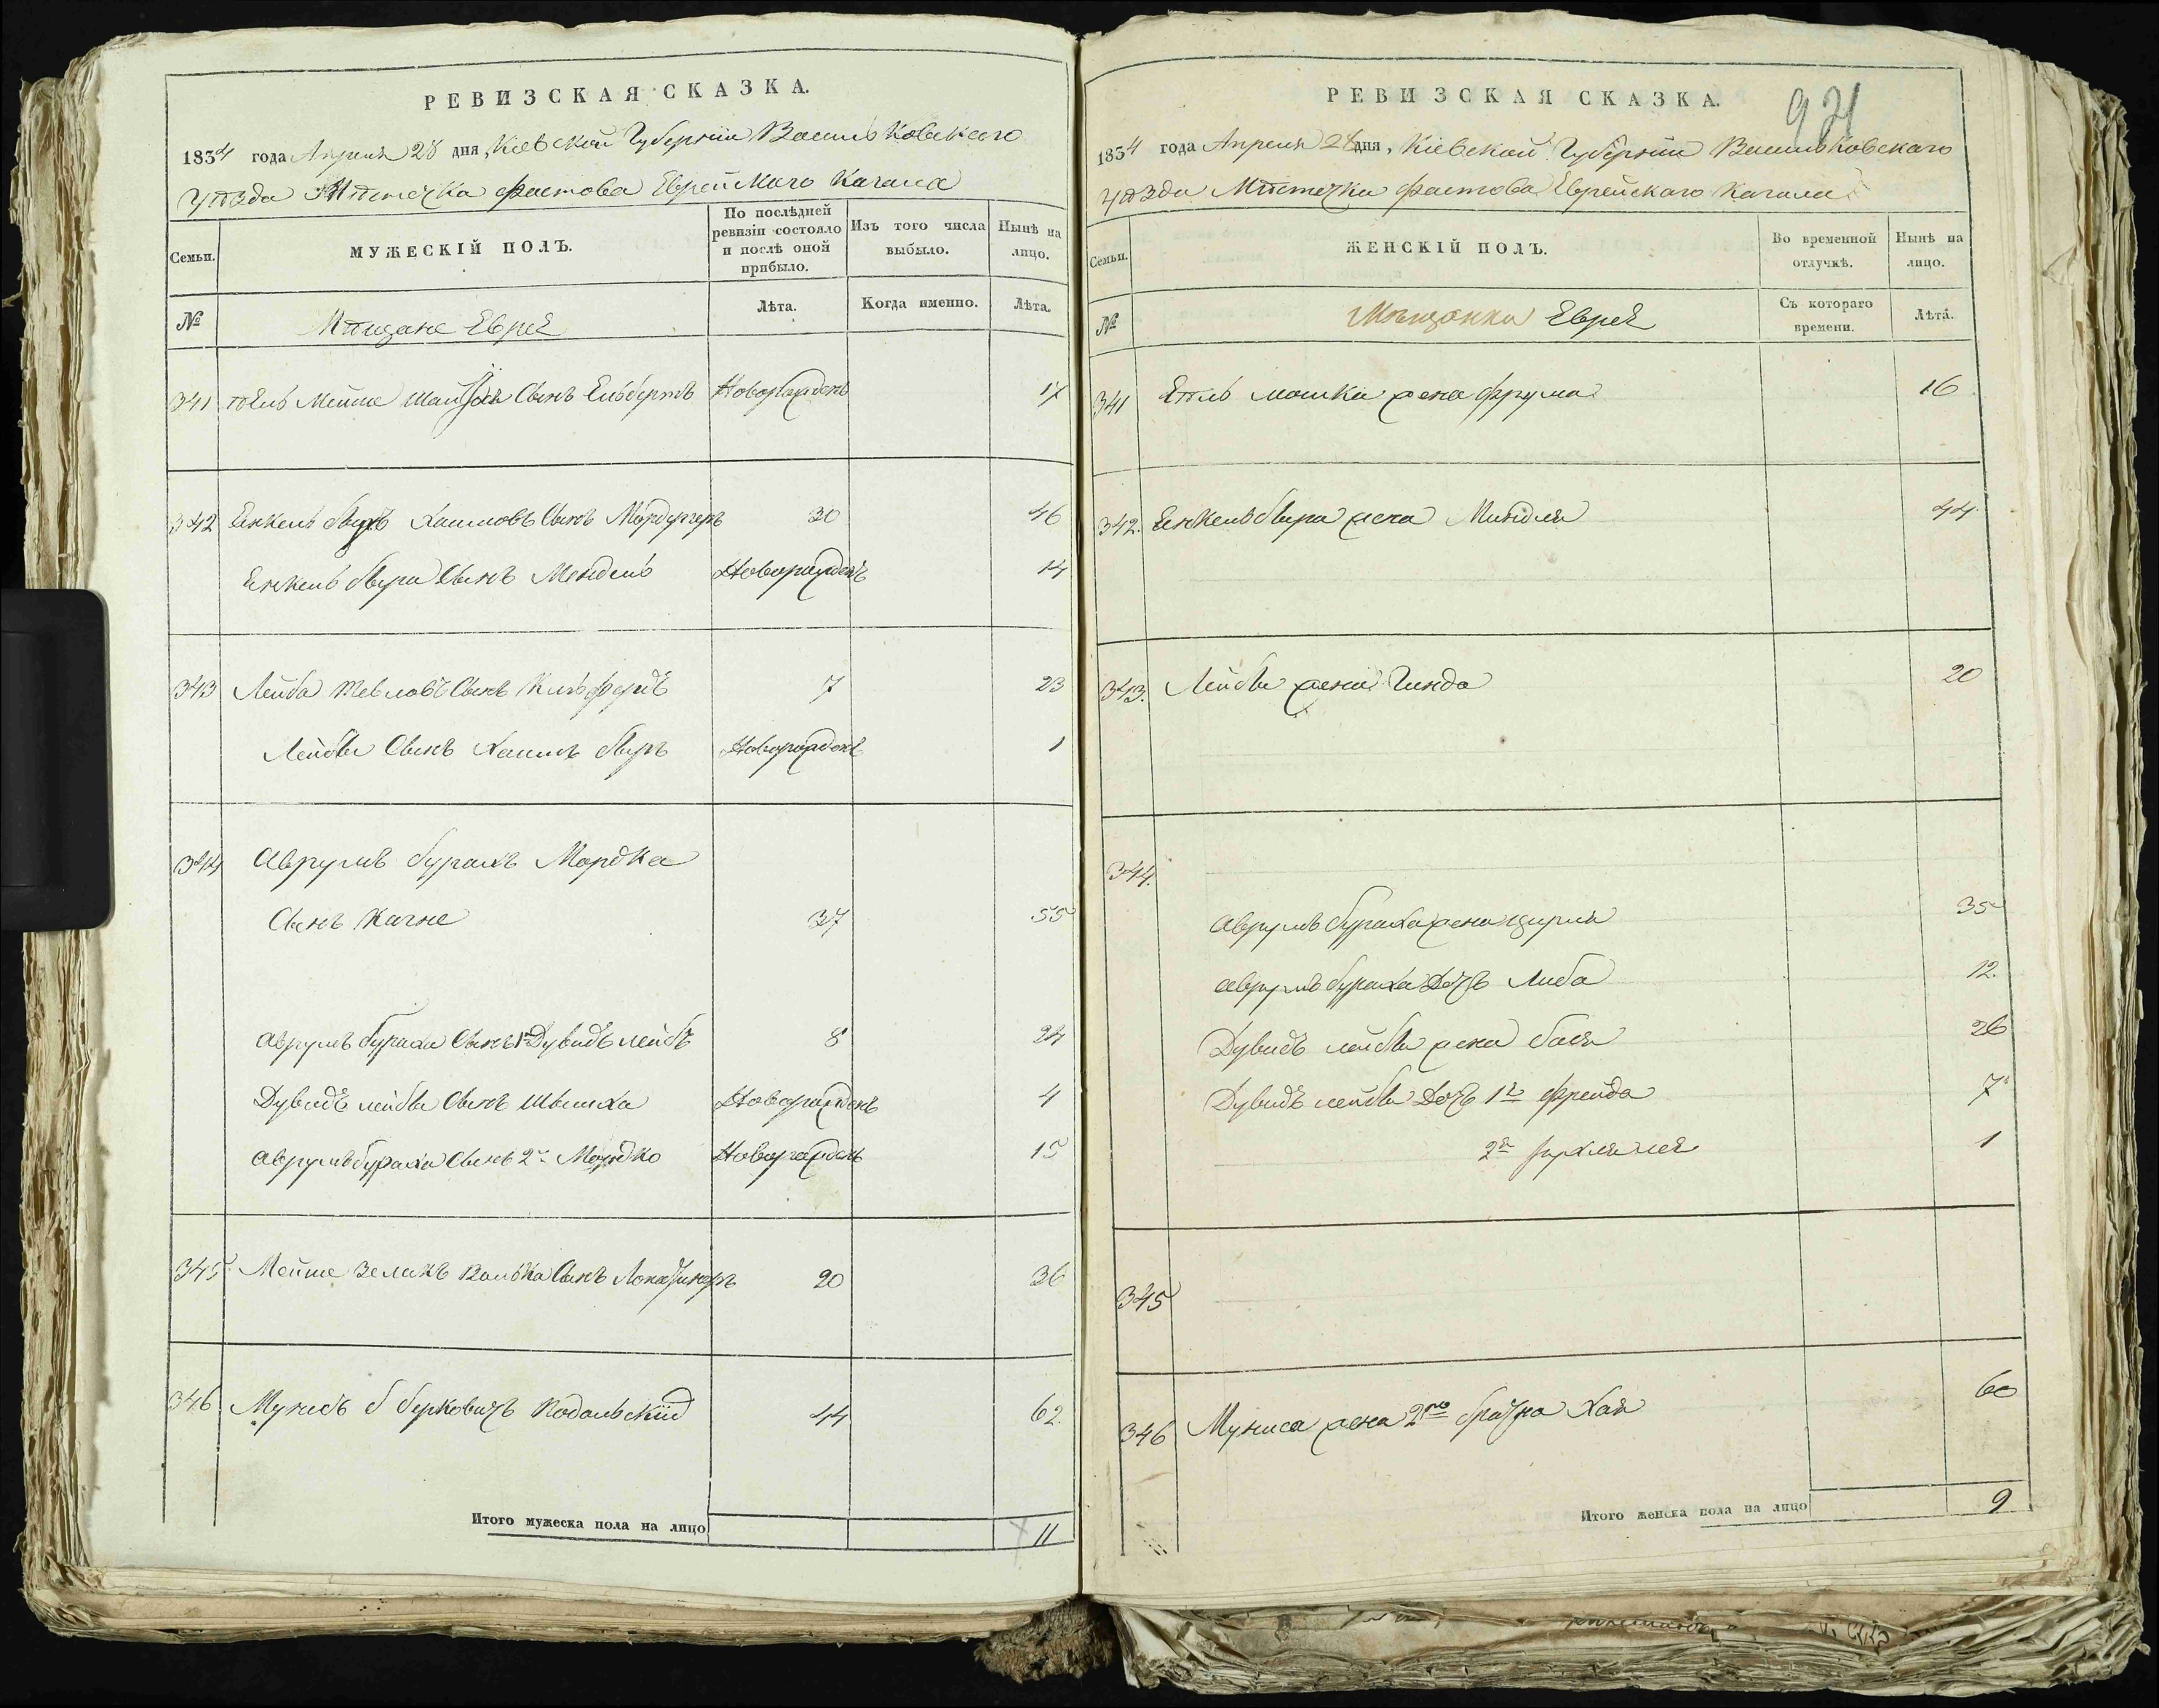 РЕВИЗСКАЯ СКАЗКА.
1834 года Апреля 28 дня, Кіевской Губерніи Васильковскаго
уѣзда Мѣстечка Фастова Еврейскаго Кагала
Семьи.
МУЖЕСКІЙ ПОЛЪ.
По послѣдней ревизіи состояло и послѣ оной прибыло.
Изъ того числа выбыло.
Нынѣ на лицо.
№
Мѣщане Евреи
Лѣта.
Когда именно.
Лѣта.
341 Мейше Сынъ Новорожденъ 17
342 Енкель Хаимовъ Сынъ 30 46
Енкель Бера Сынъ Мендель Новорожденъ 14
343 Лейба Тевловъ Сынъ 7 23
Лейбы Сынъ Хаимъ Беръ Новорожденъ 1
344 Аврумъ Бурахъ Мордка
Сынъ Кагне 37 55
Аврумъ Бураха Сынъ 1й Дувидъ Лейбъ 8 24
Дувидъ Лейбы Сынъ Шлиома Новорожденъ 4
Аврумъ Бураха Сынъ 2й Мордко Новорожденъ 15
345 Мейше Зелихъ Волька Сынъ 20 36
346 Мунисъ Берковичъ Подольскій 44 62.
Итого мужеска пола на лицо 11
РЕВИЗСКАЯ СКАЗКА.
921
1834 года Апреля 28 дня, Кіевской Губерніи Васильковскаго
уѣзда Мѣстечка Фастова Еврейскаго Кагала
Семьи.
ЖЕНСКІЙ ПОЛЪ.
Во временной отлучкѣ.
Нынѣ на лицо.
№
Мѣщанки Евреи
Съ котораго времени.
Лѣта.
341 мошка жена Фрума 16
342. Енкель Бера жена Миндля 44
343. Лейбы жена Гинда 20
344.
Аврумъ Бураха жена Цирля 35
Аврумъ Бураха Дочь Либа 12.
Дувидъ Лейбы жена Бася 26
Дувидъ Лейбы Дочь 1я Фрейда 7
2я 1
345
346 Муниса жена 2го брачна Хая 60
Итого женска пола на лицо 9